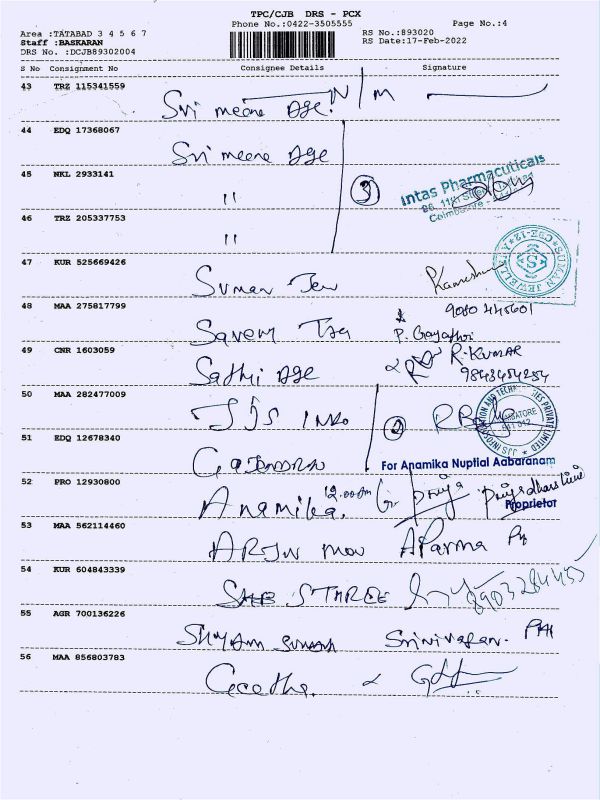 TPC/CJB DRS - PCX
Phone No.:0422-3505555
Page No.:4
Area :TATABAD 3 4 5 6 7
Staff :BASKARAN
DRS No. :DCJB89302004
RS No.:893020
RS Date:17-Feb-2022
S No Consignment No Consignee Details Signature
43 TRZ 115341559
Sri meena Age. N/m
44 EDQ 17368067
Sri meena Age
45 NKL 2933141
"
3
Intas Pharmacuticals
Coimbatore
46 TRZ 205337753
"
47 KUR 525669426
Suman Jew
Kameshw
SUMAN JEWELL
CBE-12
9080 445601
48 MAA 275817799
P. Gayathri
49 CNR 1603059
Sathi Age
R. KUMAR
9843454254
50 MAA 282477009
SJS Info
2
51 EDQ 12678340
Gajendran
For Anamika Nuptial Aabaranam
52 PRO 12930800
Anamika. 12.00
Priya
Priyadharshini
Proprietor
53 MAA 562114460
Aparna
54 KUR 604843339
STHREE
8903284455
55 AGR 700136226
Shyam Suman Srinivasan.
56 MAA 856803783
Geetha.